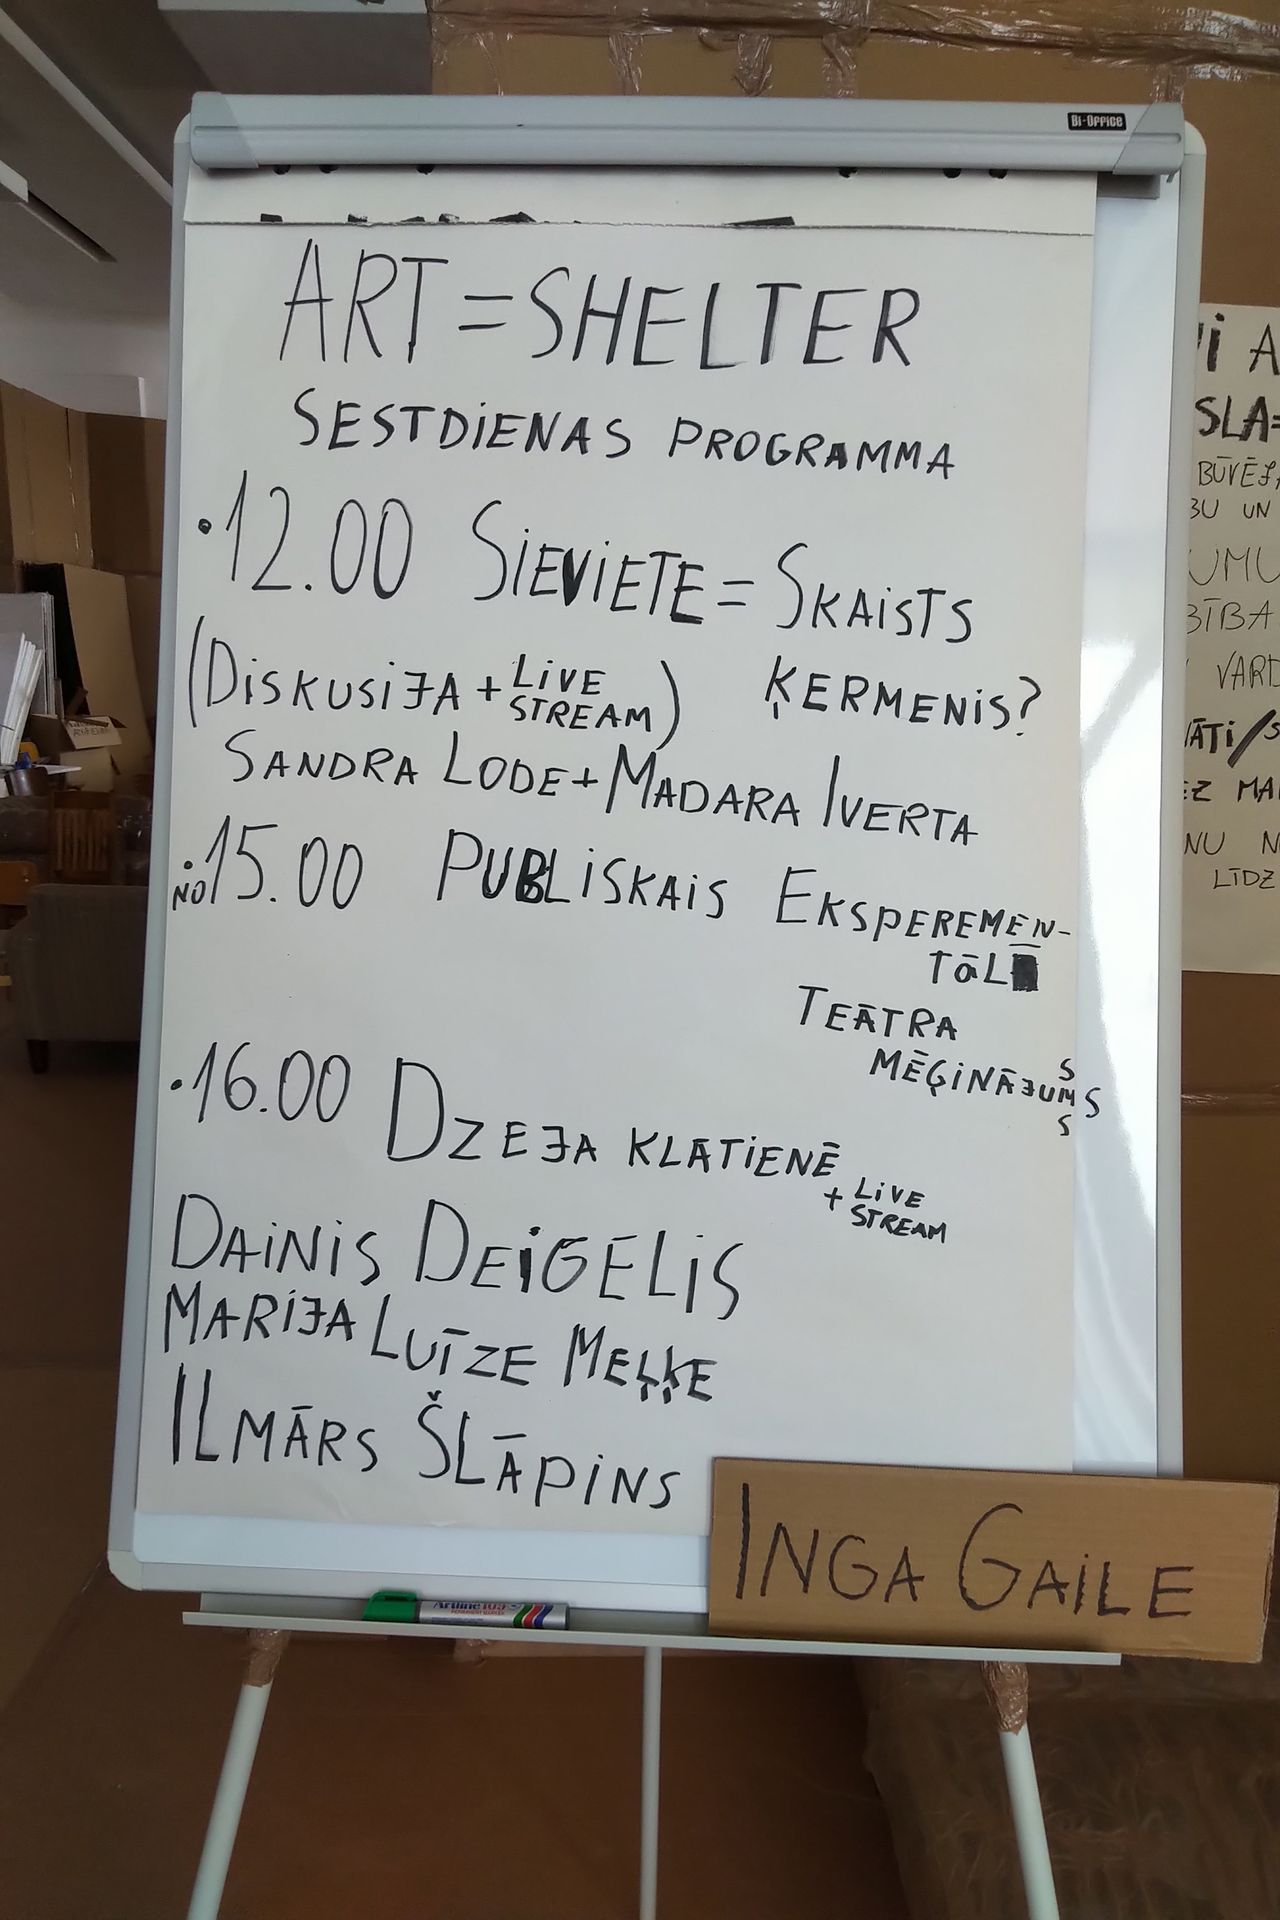 Bi-Office
ART = SHELTER
SESTDIENAS PROGRAMMA
• 12.00 SIEVIETE = SKAISTS
(DISKUSIJA + LIVE STREAM) ĶERMENIS?
SANDRA LODE + MADARA IVERTA
• NO 15.00 PUBLISKAIS EKSPEREMEN-
TĀL
TEĀTRA
MĒĢINĀJUMS
S
S
• 16.00 DZEJA KLĀTIENĒ
+ LIVE STREAM
DAINIS DEIGELIS
MARIJA LUĪZE MEĻĶE
ILMĀRS ŠLĀPINS
INGA GAILE
Artline
SLA=
BŪVĒJ
BU UN
UMU
BĪBA
VARD
ĀTI/S
EZ MA
NU N
LĪDZ